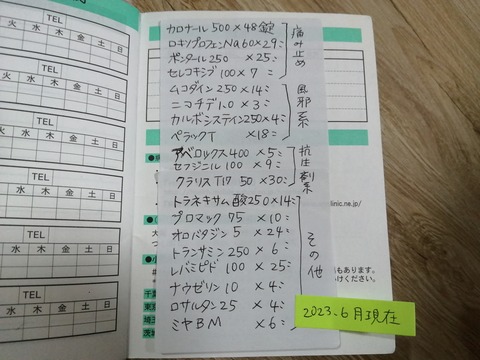 カロナール 500×48錠
ロキソプロフェンNa60×29〃
ポンタール250 ×25〃
セレコキシブ 100×7 〃
痛み止め
ムコダイン 250×14〃
ニコチデ 1.0×3〃
カルボシステイン250×4〃
ペラックT ×18〃
風邪系
アベロックス400×5〃
セフジニル 100×9〃
クラリスT17 50×30〃
トラネキサム酸250×14〃
プロマック 75 ×10〃
オロパタジン 5 ×24〃
トランサミン 250×6〃
レバミピド 100 ×25〃
ナウゼリン 10 ×4〃
ロサルタン 25 ×4〃
ミヤBM ×6〃
その他
2023.6月現在
TEL
水 木 金 土 日
TEL
火 水 木 金 土 日
TEL
火 水 木 金 土 日
TEL
火 水 木 金 土 日
TEL
月 火 水 木 金 土 日
TEL
月 火 水 木 金 土 日
linic.ne.jp/
もあります。
けください。
千葉
東京
埼玉
茨城